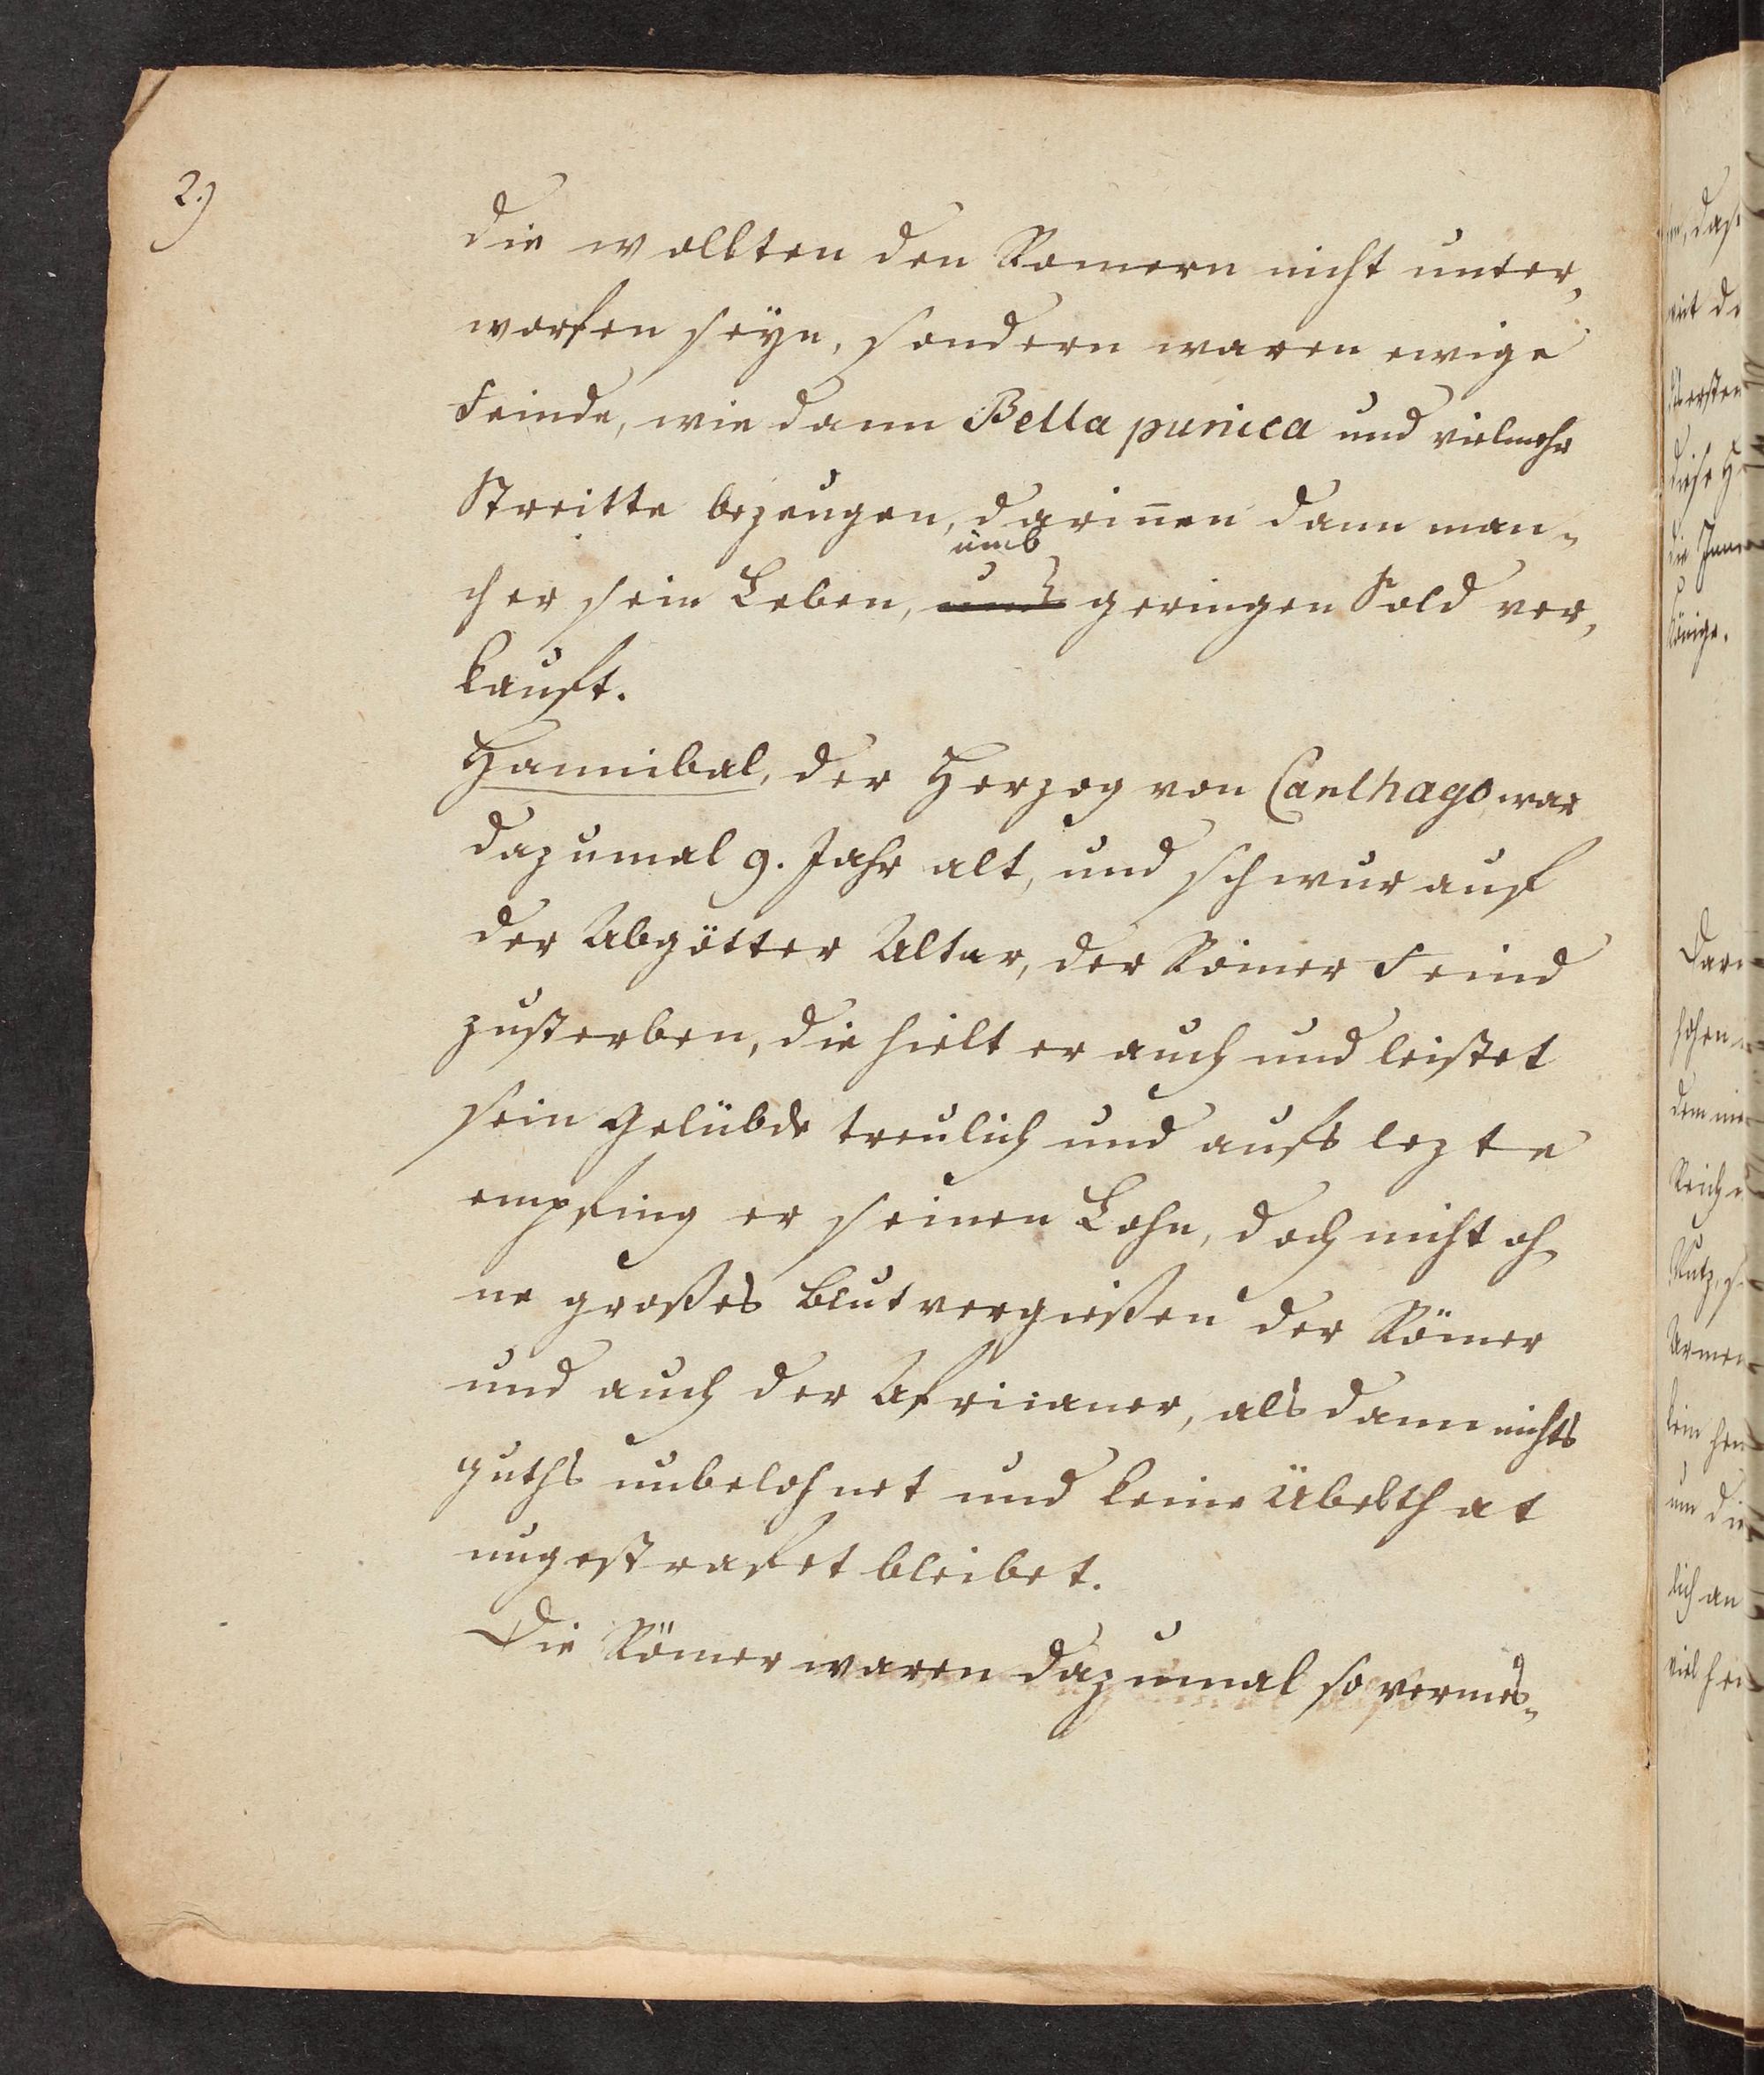 2.)
die wollten den Romern nicht unter,
worfen seÿn, sondern waren ewige
Feinde, wie dann Bella punica und vielmehr
Streitte bezeugen, dariñen dann man-
umb
cher sein Leben, und geringen Sold ver,
kauft.
Hannibal, der Herzog von Carthago, war
dazumal 9. Jahr alt, und schwur auf
der Abgötter Altar, der Römer Feind
zusterben, die hielt er auch und leistet
sein Gelübde treulich und aufs lezte
empfing er seinen Lohn, doch nicht oh-
ne großes Blutvergießen der Römer
und auch der Africaner, als dann nichts
guths unbelohnet und keine Übelthat
ungestrafet bleibet.
Die Römer waren dazumal so vermes-